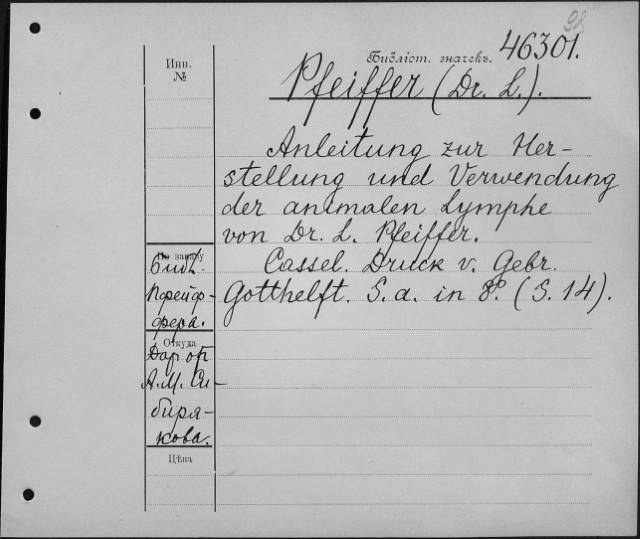 98
Библіот. значекъ. 46301.
Инв.
№
Pfeiffer (Dr. L.).
Anleitung zur Her-
stellung und Verwendung
der animalen Lymphe
von Dr. L. Pfeiffer.
Cassel. Druck v. Gebr.
Gotthelft. S. a. in 8º. (S. 14).
Библ.
Пфейф-
фера.
Откуда
Дар от
А.М. Си-
биря-
кова.
Цѣна